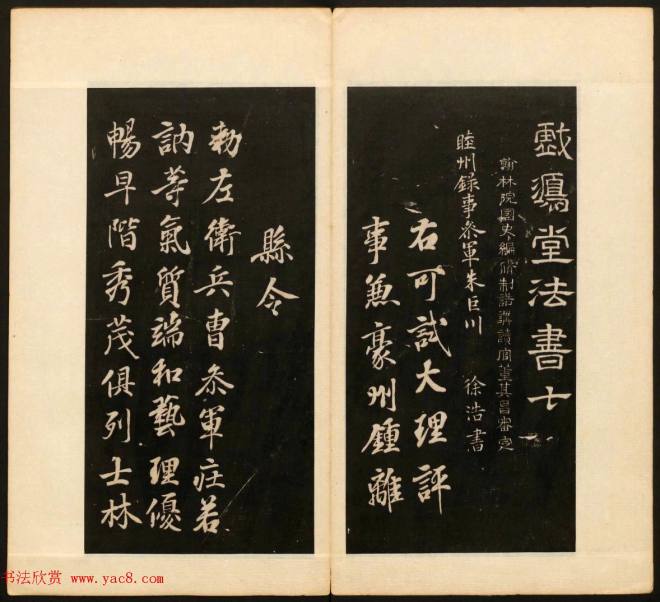 戲鴻堂法書十
翰林院國史編修制誥講讀官董其昌審定
睦州錄事叅軍朱巨川 徐浩書
右可試大理評
事兼豪州鍾離
縣令
勑左衛兵曹叅軍庄若
訥等氣質端和藝理優
暢早階秀茂俱列士林
书法欣赏 www.yac8.com